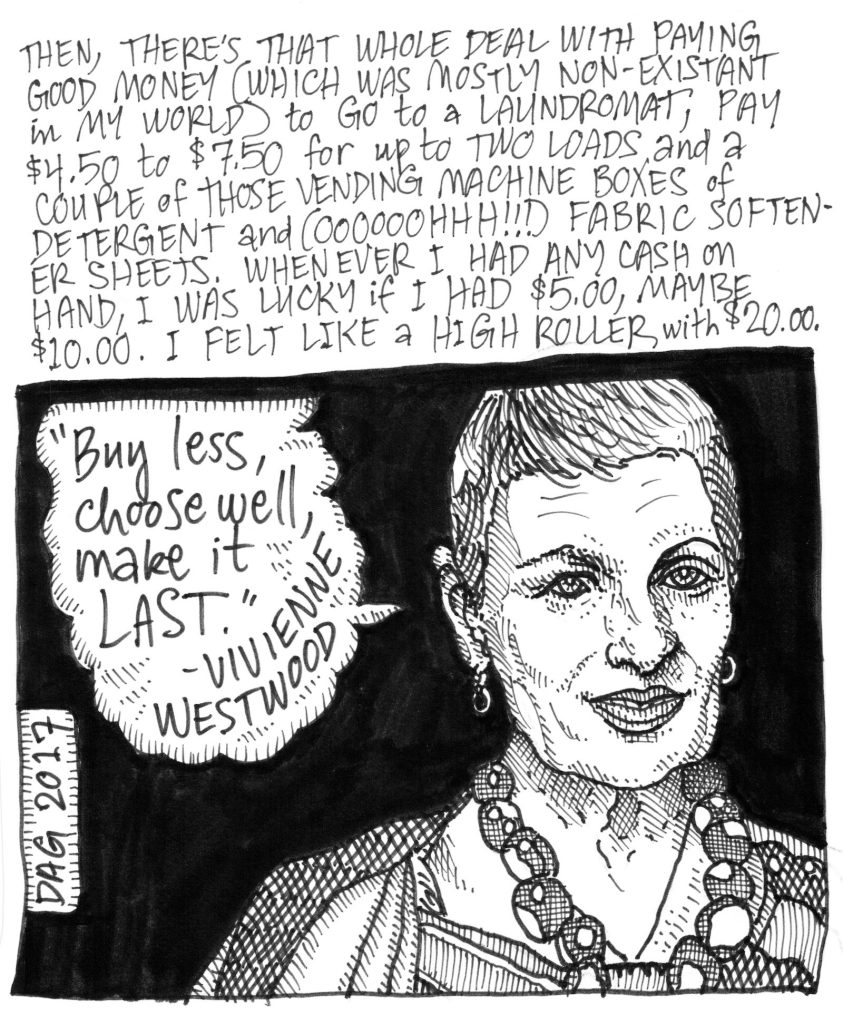 THEN, THERE'S THAT WHOLE DEAL WITH PAYING
GOOD MONEY (WHICH WAS MOSTLY NON-EXISTANT
in MY WORLD) to GO to a LAUNDROMAT, PAY
$4.50 to $7.50 for up to TWO LOADS and a
COUPLE of THOSE VENDING MACHINE BOXES of
DETERGENT and (OOOOOOHHH!!!) FABRIC SOFTEN-
ER SHEETS. WHENEVER I HAD ANY CASH on
HAND, I WAS LUCKY if I HAD $5.00, MAYBE
$10.00. I FELT LIKE a HIGH ROLLER with $20.00.
"Buy less,
choose well,
make it
LAST."
-VIVIENNE
WESTWOOD
DAG 2017